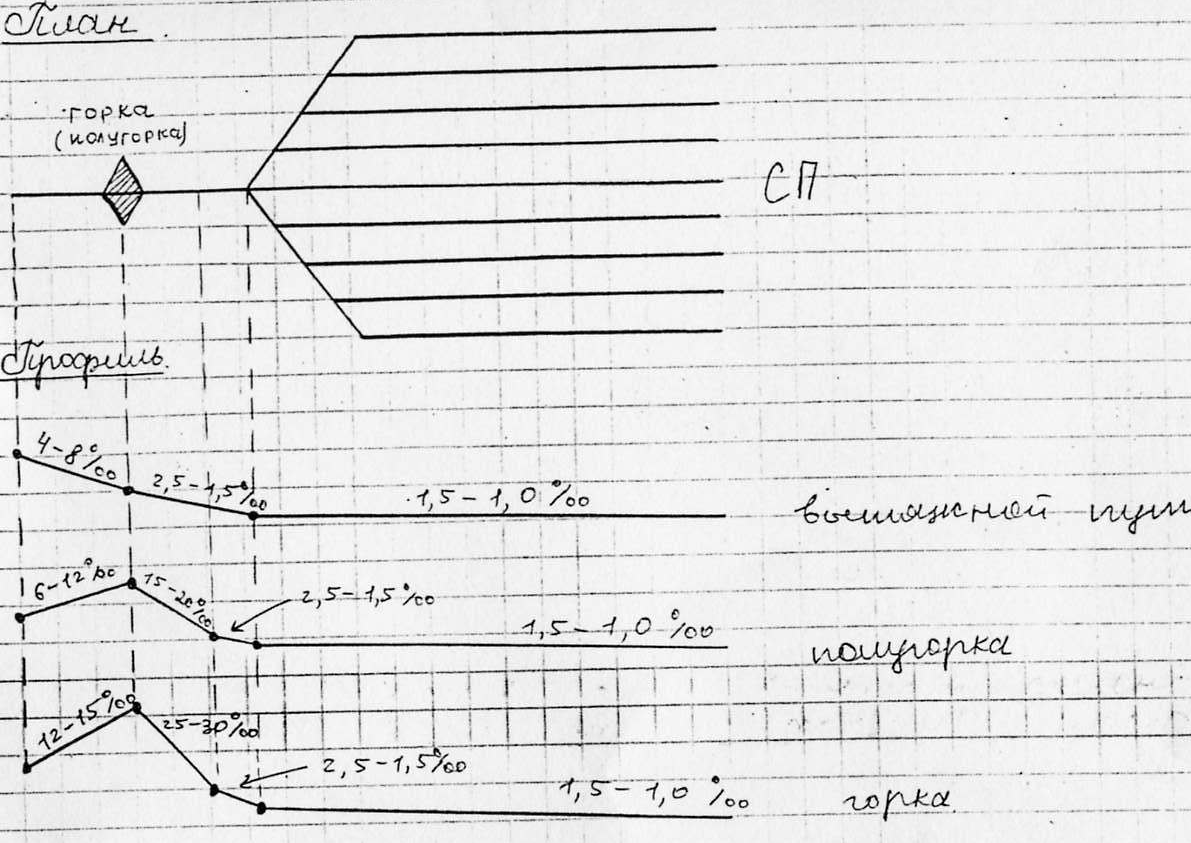 План
горка
(полугорка)
СП
Профиль.
4-8‰
2,5-1,5‰
1,5-1,0‰
вытяжной пути
6-12‰
15-20‰
2,5-1,5‰
1,5-1,0‰
полугорка
12-15‰
25-30‰
2,5-1,5‰
1,5-1,0‰
горка